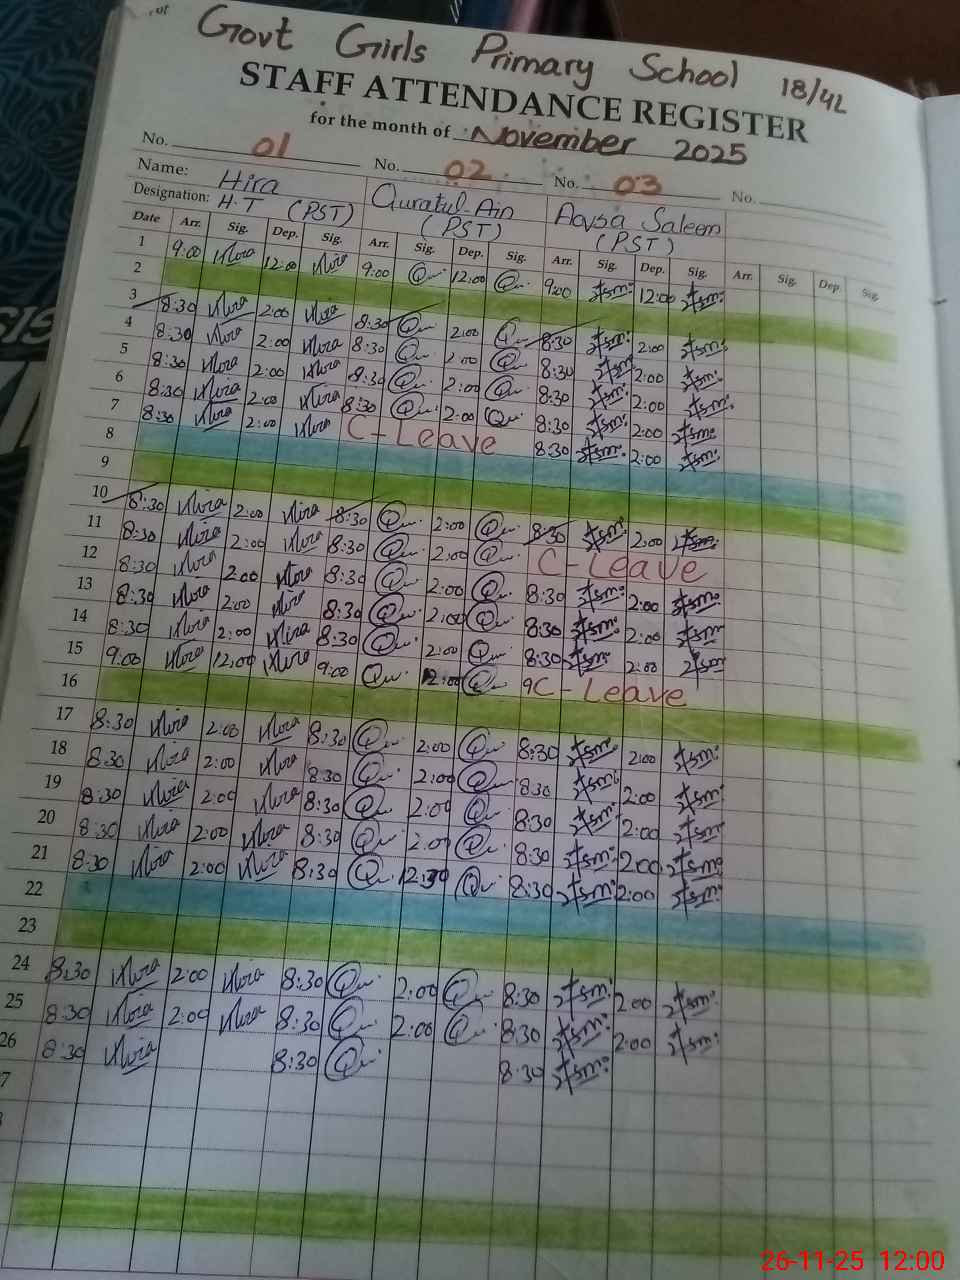 of Govt Girls Primary School 18/4L
STAFF ATTENDANCE REGISTER
for the month of November 2025
No. 01 No. 02 No. 03 No.
Name: Hira Quratul-Ain Aqysa Saleem
Designation: H.T (PST) (PST) (PST)
Date Arr. Sig. Dep. Sig. Arr. Sig. Dep. Sig. Arr. Sig. Dep. Sig. Arr. Sig. Dep. Sig.
1 9:00 Hira 12:00 Hira 9:00 Qu. 12:00 Qu. 9:00 12:00
2
3 8:30 Hira 2:00 Hira 8:30 Qu. 2:00 Qu. 8:30 2:00
4 8:30 Hira 2:00 Hira 8:30 Qu. 2:00 Qu. 8:30 2:00
5 8:30 Hira 2:00 Hira 8:30 Qu. 2:00 Qu. 8:30 2:00
6 8:30 Hira 2:00 Hira 8:30 Qu. 2:00 Qu. 8:30 2:00
7 8:30 Hira 2:00 Hira C-Leave 8:30 2:00
8
9
10 8:30 Hira 2:00 Hira 8:30 Qu. 2:00 Qu. 8:30 2:00
11 8:30 Hira 2:00 Hira 8:30 Qu. 2:00 Qu. C-Leave
12 8:30 Hira 2:00 Hira 8:30 Qu. 2:00 Qu. 8:30 2:00
13 8:30 Hira 2:00 Hira 8:30 Qu. 2:00 Qu. 8:30 2:00
14 8:30 Hira 2:00 Hira 8:30 Qu. 2:00 Qu. 8:30 2:00
15 9:00 Hira 12:00 Hira 9:00 Qu. 12:00 Qu. 9 C-Leave
16
17 8:30 Hira 2:00 Hira 8:30 Qu. 2:00 Qu. 8:30 2:00
18 8:30 Hira 2:00 Hira 8:30 Qu. 2:00 Qu. 8:30 2:00
19 8:30 Hira 2:00 Hira 8:30 Qu. 2:00 Qu. 8:30 2:00
20 8:30 Hira 2:00 Hira 8:30 Qu. 2:00 Qu. 8:30 2:00
21 8:30 Hira 2:00 Hira 8:30 Qu. 12:30 Qu. 8:30 2:00
22
23
24 8:30 Hira 2:00 Hira 8:30 Qu. 2:00 Qu. 8:30 2:00
25 8:30 Hira 2:00 Hira 8:30 Qu. 2:00 Qu. 8:30 2:00
26 8:30 Hira 8:30 Qu. 8:30
7
26-11-25 12:00